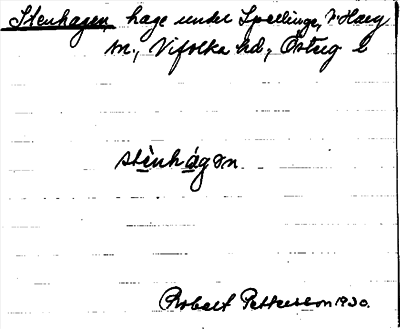 Stenhagen, hage under Spellinge, V. Harg
sn., Vifolka hd, Östug l
stènhágən
Robert Pettersson 1930.